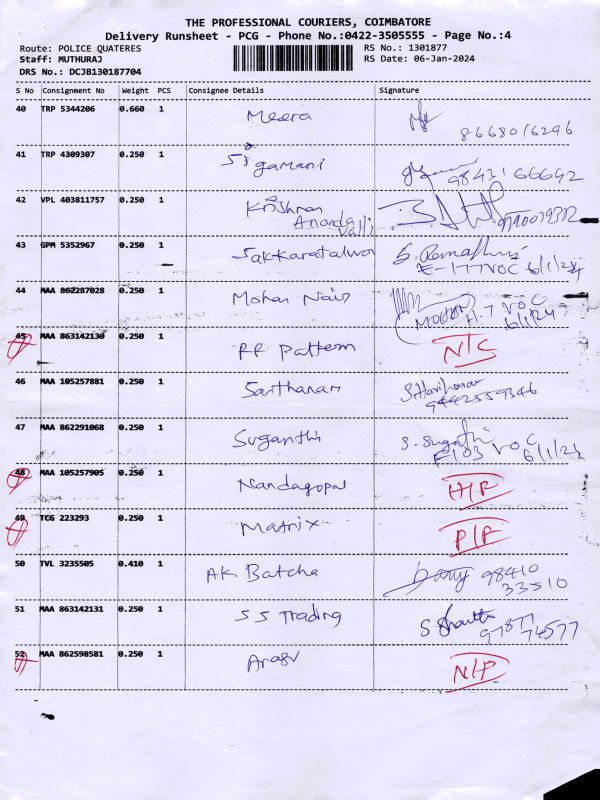 THE PROFESSIONAL COURIERS, COIMBATORE
Delivery Runsheet - PCG - Phone No.:0422-3505555 - Page No.:4
Route: POLICE QUATERES RS No.: 1301877
Staff: MUTHURAJ RS Date: 06-Jan-2024
DRS No.: DCJB130187704
S No Consignment No Weight PCS Consignee Details Signature
40 TRP 5344206 0.660 1 Meera
86680 16296
41 TRP 4309307 0.250 1 Sigamani
98431 66642
42 VPL 403811757 0.250 1 Krishnan
Ananda
Valli
43 GPM 5352967 0.250 1 Sakkaratalwar
E-177 VOC 6/1/24
44 MAA 862287028 0.250 1 Mohan Nair
MOHAN H-7 VOC
6/1/24
45 MAA 863142130 0.250 1 RR Pattern N/C
46 MAA 105257881 0.250 1 Santhanam S.Hariharan
9442559346
47 MAA 862291068 0.250 1 Suganthi S. Suganthi
F103 VOC
6/1/24
48 MAA 105257905 0.250 1 Nandagopal
49 TCG 223293 0.250 1 Matrix
50 TVL 3235505 0.410 1 AK Batcha 98410
33510
51 MAA 863142131 0.250 1 SS Trading S Shanthi
97877
74577
52 MAA 862598581 0.250 1 Arasu N/P